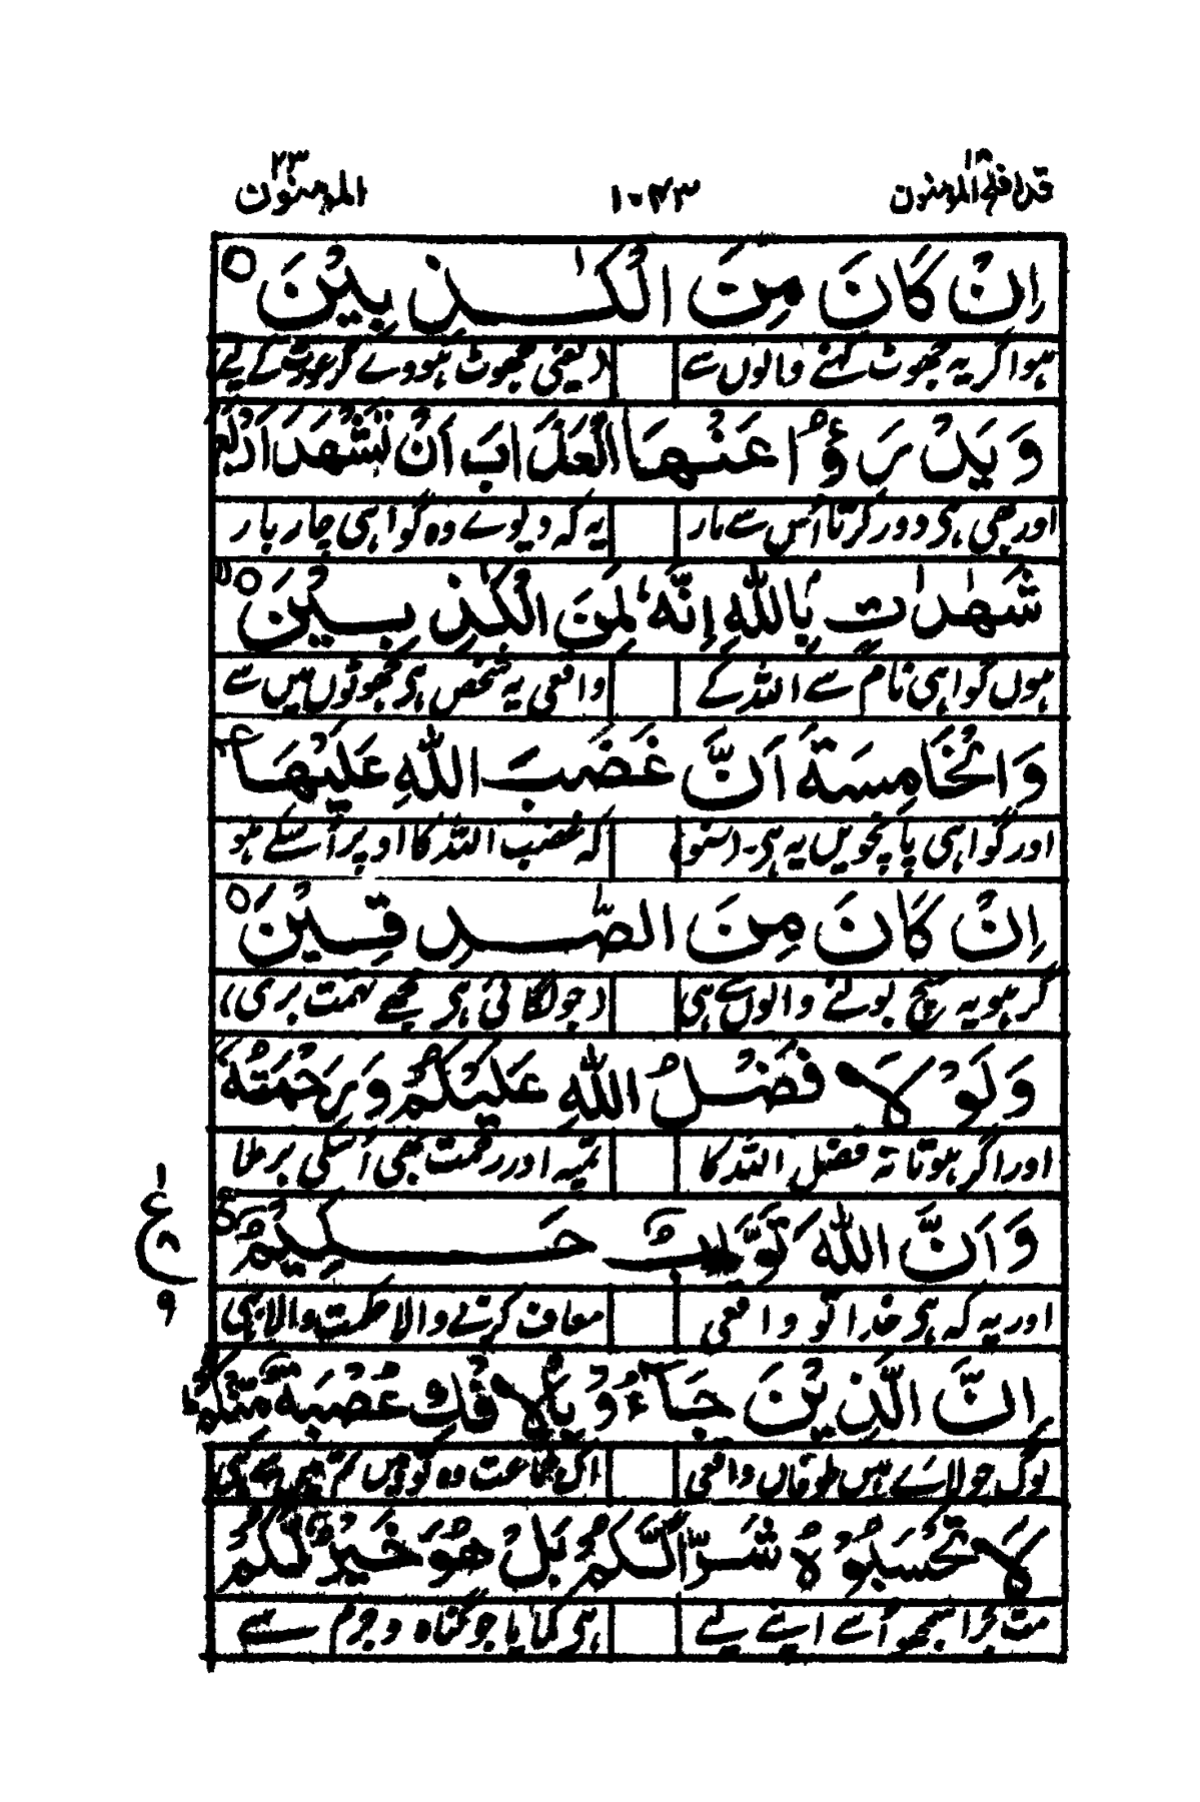 قد افلح المؤمنون ١٨ ١٠٤٣ المؤمنون ٢٣
اِنْ كَانَ مِنَ الْكٰذِبِيْنَ ○
ہوا گر یہ جھوٹ کہنے والوں سے (یعنی جھوٹ ہووے گر عورت کے لیے
وَيَدْرَؤُا عَنْهَا الْعَذَابَ اَنْ تَشْهَدَ اَرْبَعَ
اور بھی ہی دور کرتا اُس سے مار یہ کہ دیوے وہ گواہی چار بار
شَهٰدٰتٍ بِاللّٰهِ اِنَّهٗ لَمِنَ الْكٰذِبِيْنَ ○
ہوں گواہی نام سے اللہ کے واقعی یہ شخص ہی جھوٹوں میں سے
وَالْخَامِسَةَ اَنَّ غَضَبَ اللّٰهِ عَلَيْهَا
اور گواہی پانچویں یہ ہی۔ (سنو) کہ غضب اللہ کا اوپر اُسکے ہو
اِنْ كَانَ مِنَ الصّٰدِقِيْنَ ○
گر ہو یہ سچ بولنے والوں سے ہی (جو لگائی ہی مجھے تہمت بری)
وَلَوْلَا فَضْلُ اللّٰهِ عَلَيْكُمْ وَرَحْمَتُهٗ
اور اگر ہوتا نہ فضل اللہ کا تمپہ اور رحمت بھی اُسکی برملا
وَاَنَّ اللّٰهَ تَوَّابٌ حَكِيْمٌ
ع ١ ٩
اور یہ کہ ہی خدا تو واقعی معاف کرنے والا حکمت والا بھی
اِنَّ الَّذِيْنَ جَآءُوْ بِالْاِفْكِ عُصْبَةٌ مِّنْكُمْ
لوگ جو لائے ہیں طوفاں واقعی اک جماعت وہ تو ہیں تم میں سے ہی
لَا تَحْسَبُوْهُ شَرًّا لَّكُمْ بَلْ هُوَ خَيْرٌ لَّكُمْ
مت بُرا سمجھو اُسے اپنے لیے ہی کمایا جو گناہ و جرم سے